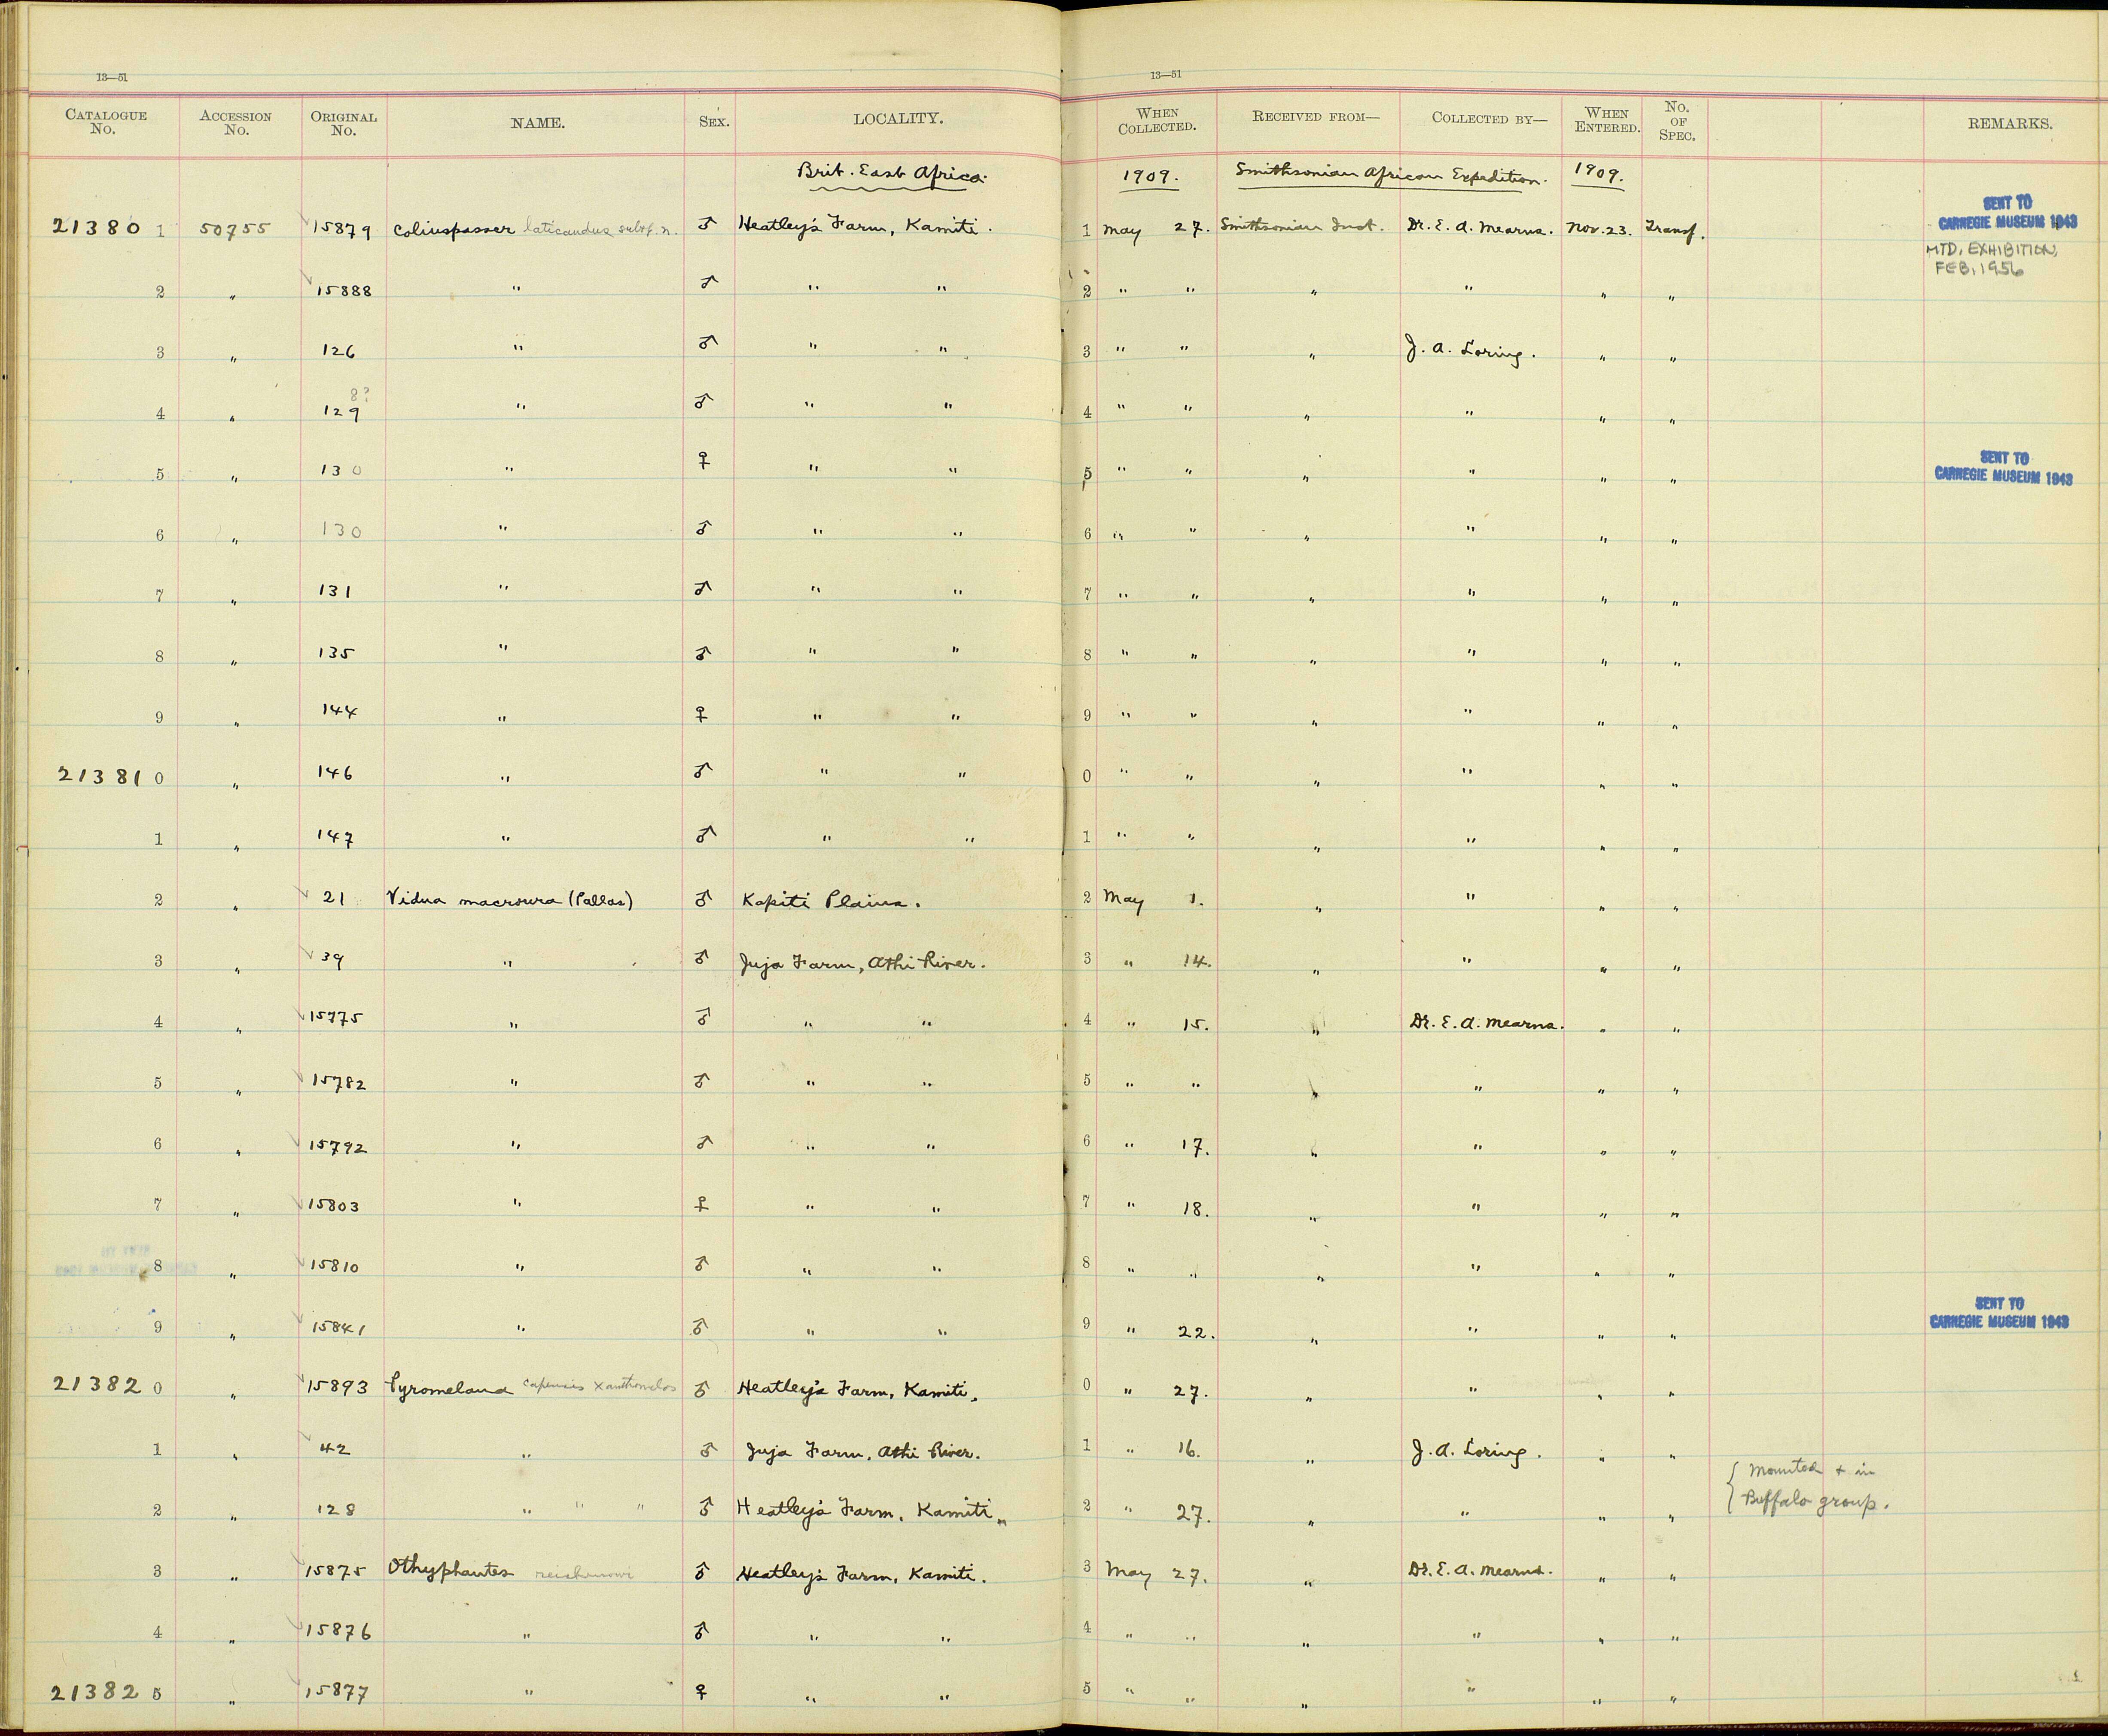 13—51
13—51
CATALOGUE No. ACCESSION No. ORIGINAL No. NAME. SEX. LOCALITY. WHEN COLLECTED. RECEIVED FROM— COLLECTED BY— WHEN ENTERED. No. OF SPEC. REMARKS.
Brit. East Africa. 1909. Smithsonian African Expedition. 1909.
21380 1 50755 15879 Coliuspasser laticaudus subsp. n. ♂ Heatley's Farm, Kamiti. 1 May 27. Smithsonian Inst. Dr. E. A. Mearns. Nov. 23. Transf. SENT TO CARNEGIE MUSEUM 1943
MTD. EXHIBITION, FEB, 1956
2 " 15888 " ♂ " " 2 " " " " " "
3 " 126 " ♂ " " 3 " " " J. A. Loring. " "
8?
4 " 129 " ♂ " " 4 " " " " " "
5 " 130 " ♀ " " 5 " " " " " " SENT TO CARNEGIE MUSEUM 1943
6 " 130 " ♂ " " 6 " " " " " "
7 " 131 " ♂ " " 7 " " " " " "
8 " 135 " ♂ " " 8 " " " " " "
9 " 144 " ♀ " " 9 " " " " " "
21381 0 " 146 " ♂ " " 0 " " " " " "
1 " 147 " ♂ " " 1 " " " " " "
2 " 21 Vidua macroura (Pallas) ♂ Kapiti Plains. 2 May 1. " " " "
3 " 39 " ♂ Juja Farm, Athi River. 3 " 14. " " " "
4 " 15775 " ♂ " " 4 " 15. " Dr. E. A. Mearns. " "
5 " 15782 " ♂ " " 5 " " " " " "
6 " 15792 " ♂ " " 6 " 17. " " " "
7 " 15803 " ♀ " " 7 " 18. " " " "
8 " 15810 " ♂ " " 8 " " " " " "
9 " 15841 " ♂ " " 9 " 22. " " " " SENT TO CARNEGIE MUSEUM 1943
21382 0 " 15893 Pyromelana capensis xanthomelas ♂ Heatley's Farm, Kamiti. 0 " 27. " " " "
1 " 42 " ♂ Juja Farm, Athi River. 1 " 16. " J. A. Loring. " "
2 " 128 " " " ♂ Heatley's Farm, Kamiti. 2 " 27. " " " " { Mounted & in Buffalo group.
3 " 15875 Othyphantes reichenowi ♂ Heatley's Farm, Kamiti. 3 May 27. " Dr. E. A. Mearns. " "
4 " 15876 " ♂ " " 4 " " " " " "
21382 5 " 15877 " ♀ " " 5 " " " " " "